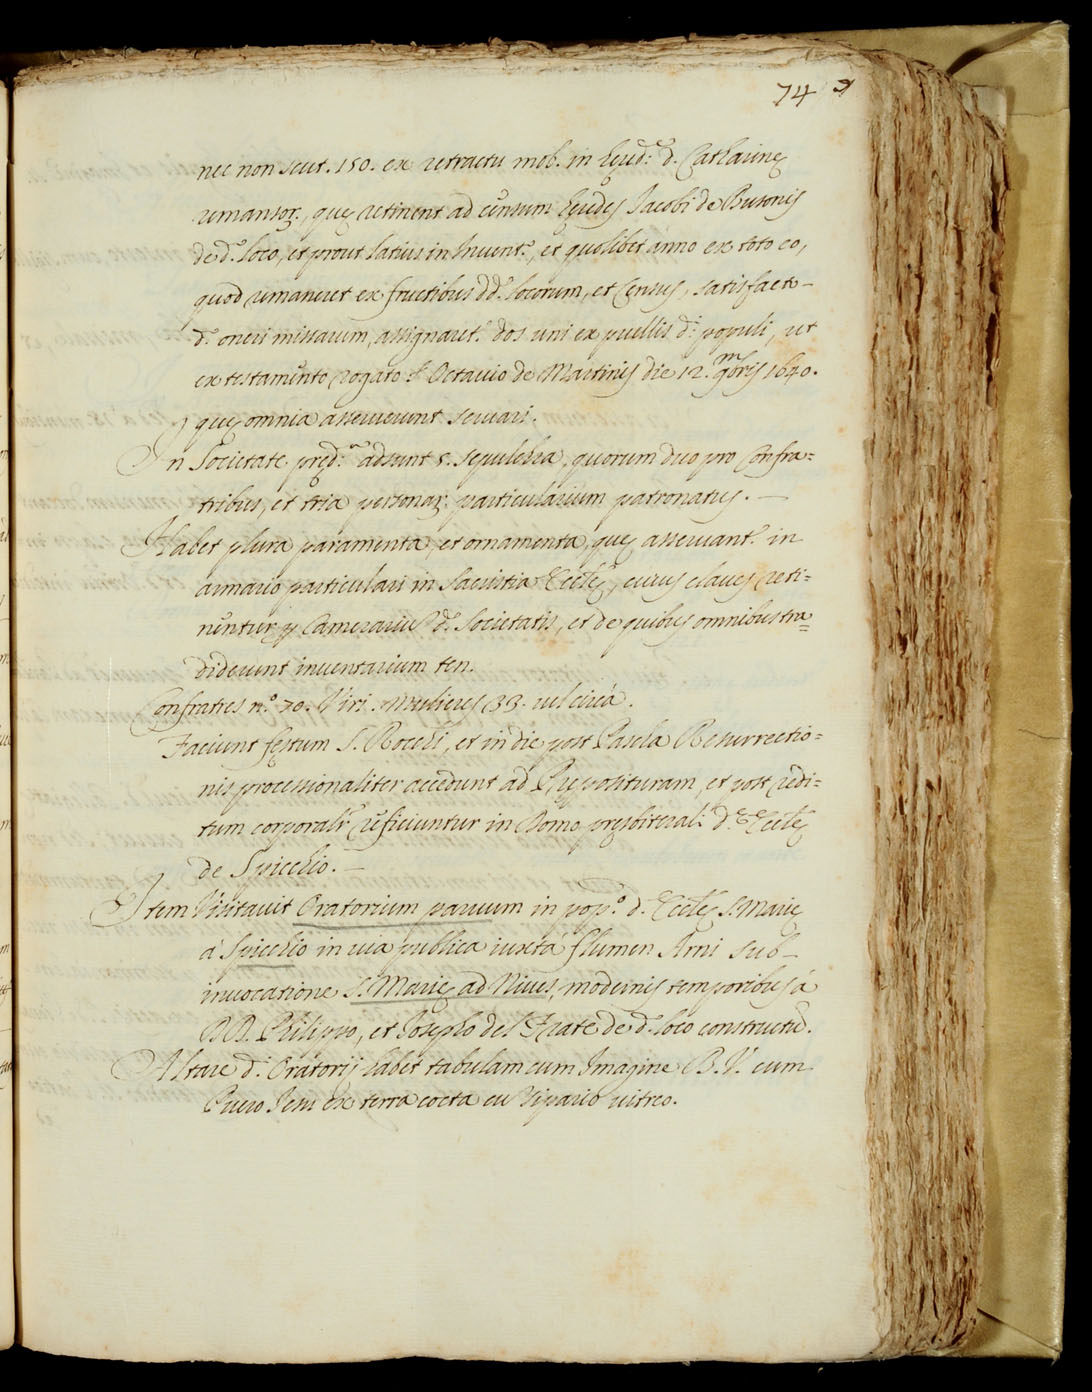 74
nec non scut. 150. ex retractu mob. in hęred.e d. Catharinę
remansor., quę retinent ad censum hęredes Jacobi de Butonis
de d.o loco, et prout latius in Invent.o, et quolibet anno ex toto eo,
quod remaneret ex fructibus dd. locorum, et Census, satisfacto
d.o oneri missarum, assignaret.r dos uni ex puellis d.i populi, ut
ex testamento rogato p. Octavio de Martinis die 12. 9bris 1640.
quę omnia asseruerunt servari.
In Societate pręd.a adsunt 5. sepulchra, quorum duo pro Confra=
tribus, et tria personar. particularium patronatus. —
Habet plura paramenta, et ornamenta, quę asservant.r in
armario particulari in Sacristia Ecclę, cuius claves reti=
nentur p Camerariũ d.ę Societatis, et de quibus omnibus tra=
diderunt inventarium ten.
Confratres n.o 70. Viri. Mulieres 33. vel circà.
Faciunt festum S. Rocchi, et in die post Pascha Resurrectio=
nis processionaliter accedunt ad Pręposituram, et post redi=
tum corporalr reficiuntur in Domo presbiterali d.ę Ecclę
de Spicchio. —
Item Visitavit Oratorium parvum in pop.o d.ę Ecclę S. Marię
à Spicchio in via publica iuxtà flumen Arni sub
invocatione S. Marię ad Nives, modernis temporibus à
DD. Philippo, et Josepho del Frate de d.o loco constructũ.
Altare d.i Oratorij habet tabulam cum Imagine B. V. cum
Puero Jesu ex terra cocta cũ riparo vitreo.